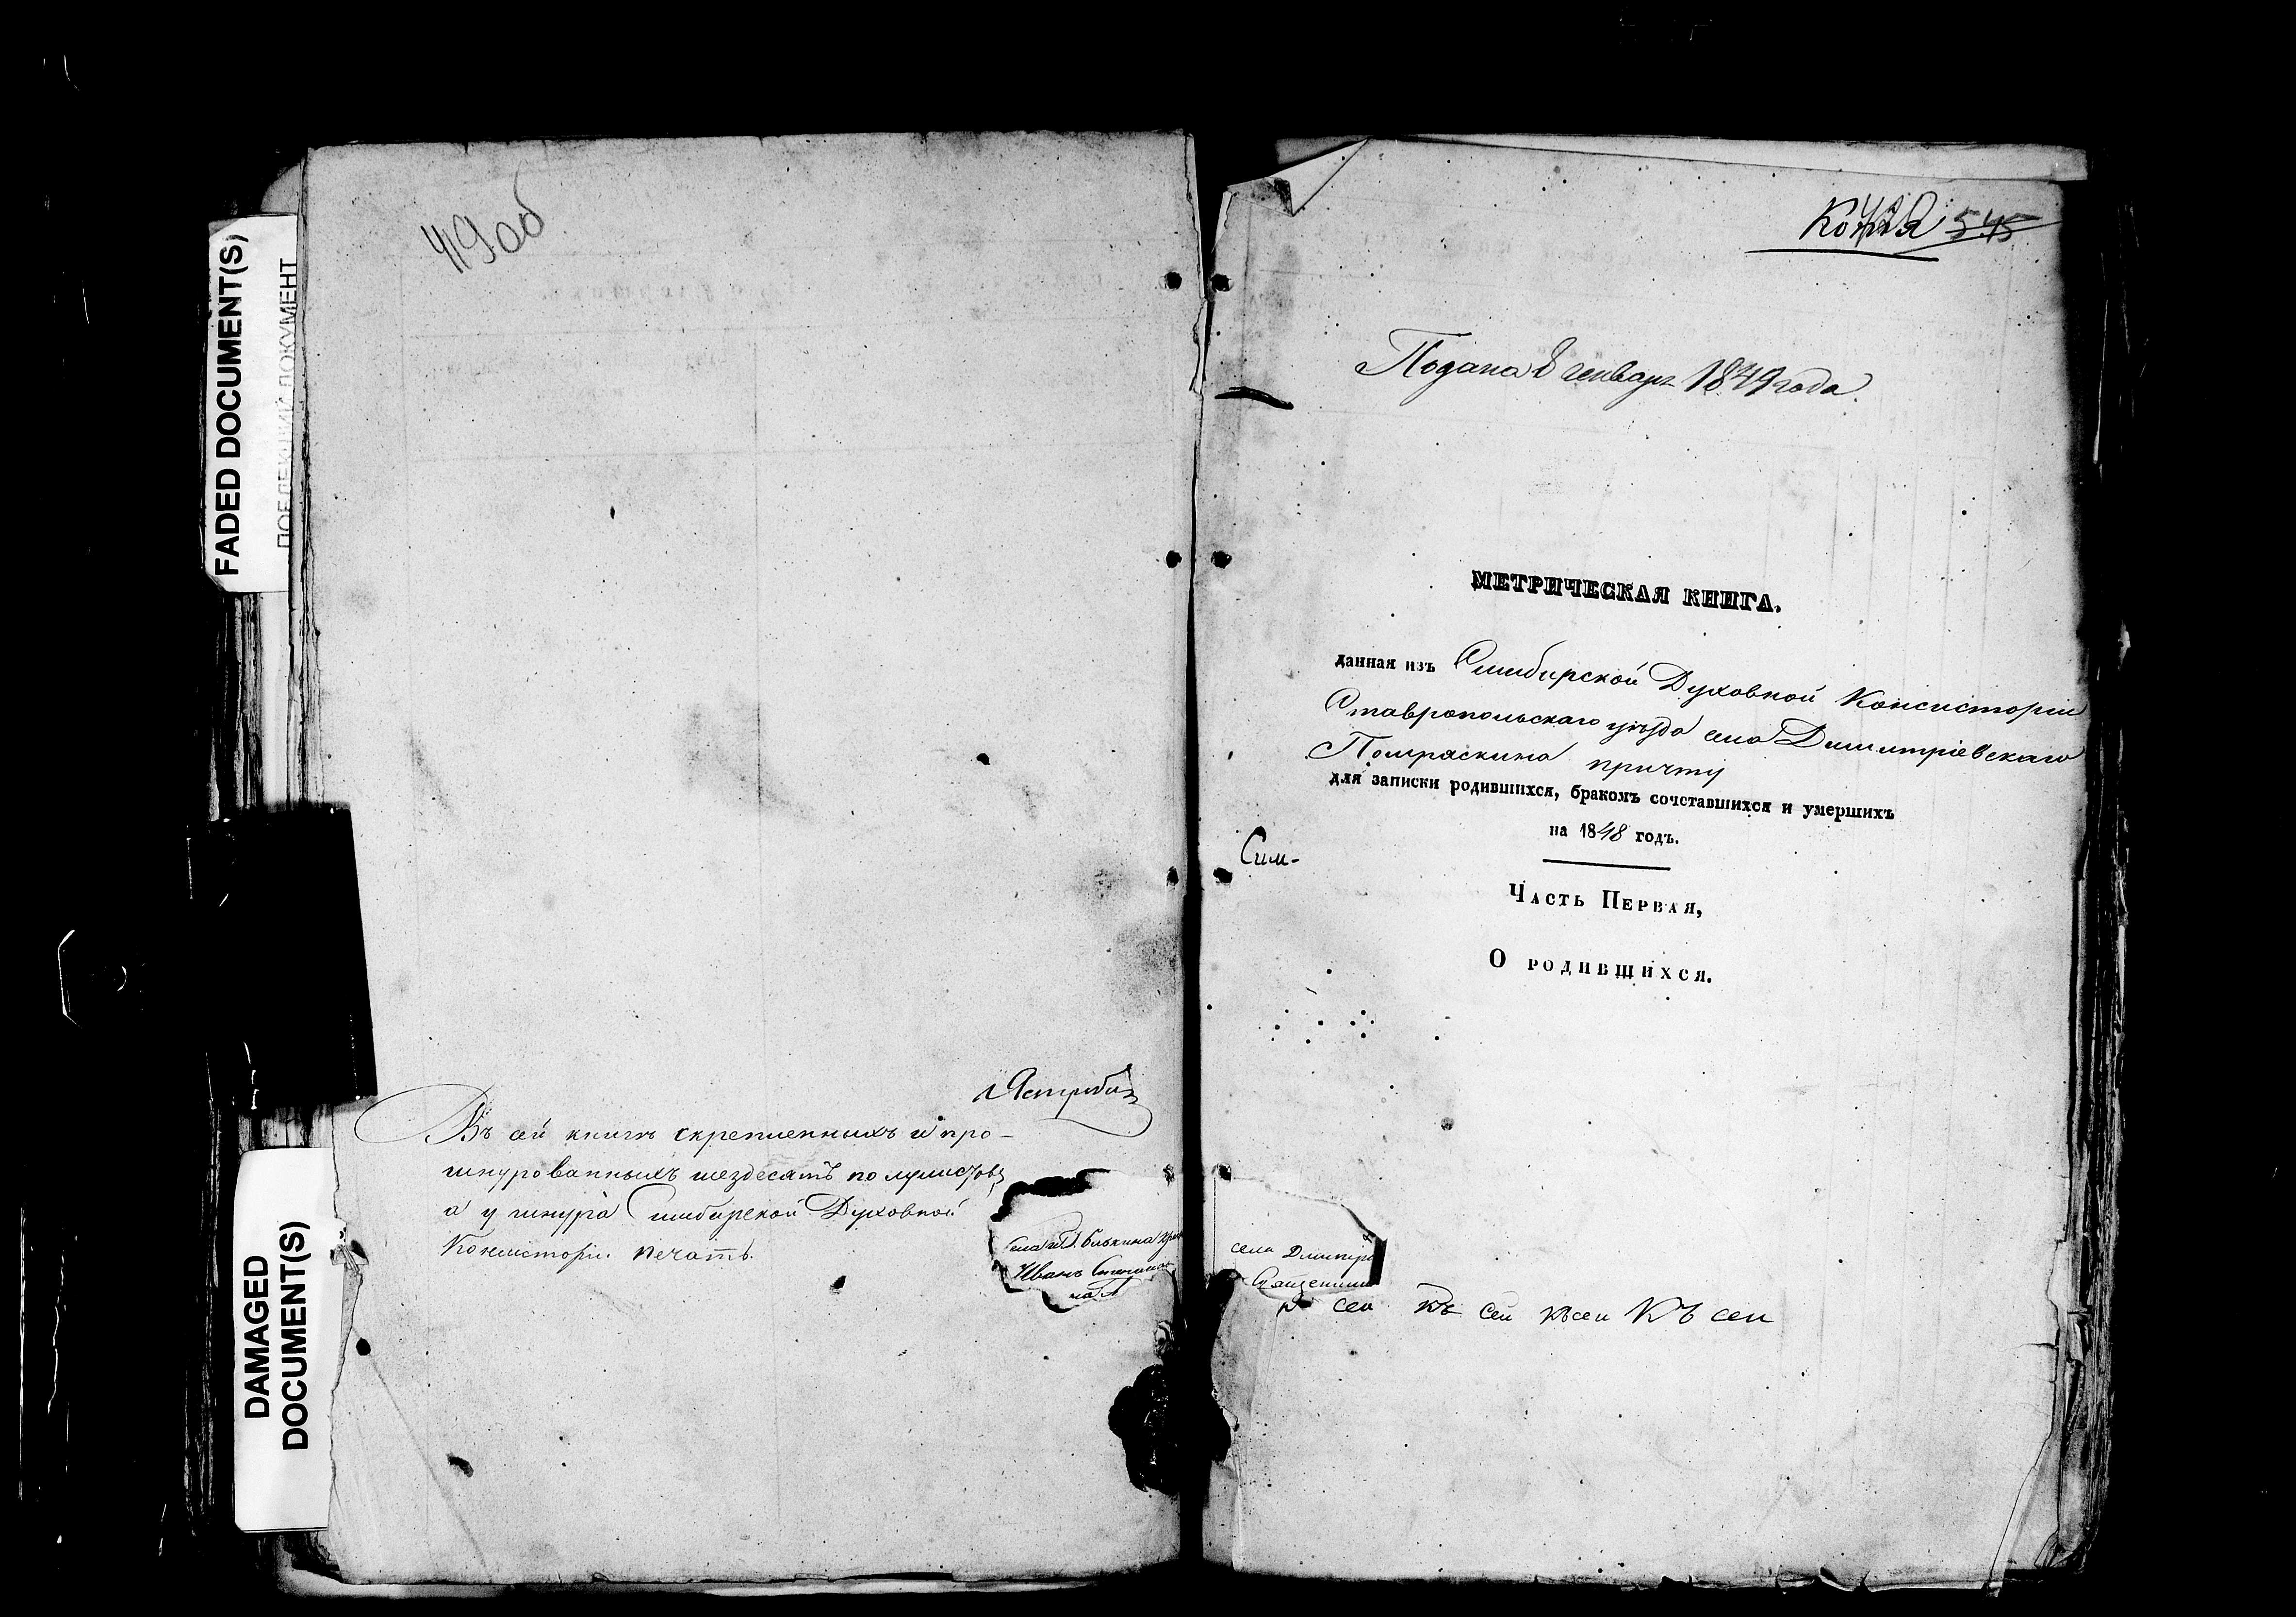 FADED DOCUMENT(S)
DAMAGED
DOCUMENT(S)
419об
Въ сей книгѣ скрепленныхъ и про-
шнурованныхъ шездесятъ полулистовъ
а у шнура Симбирской Духовной
Консисторіи печать.
Иванъ
Копія 545
Подана 8 генваря 1849 года.
МЕТРИЧЕСКАЯ КНИГА.
данная изъ Симбирской Духовной Консисторіи
Ставропольскаго уѣзда села Димитріевскаго
Помряскина причту
для записки родившихся, бракомъ сочставшихся и умершихъ
на 1848 годъ.
Сим-
Часть Первая,
О родившихся.
села Димитрі
Священник
сей къ сей къ сей КЪ сей